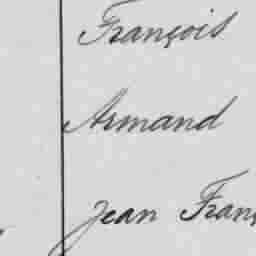 François
Armand
Jean Fran